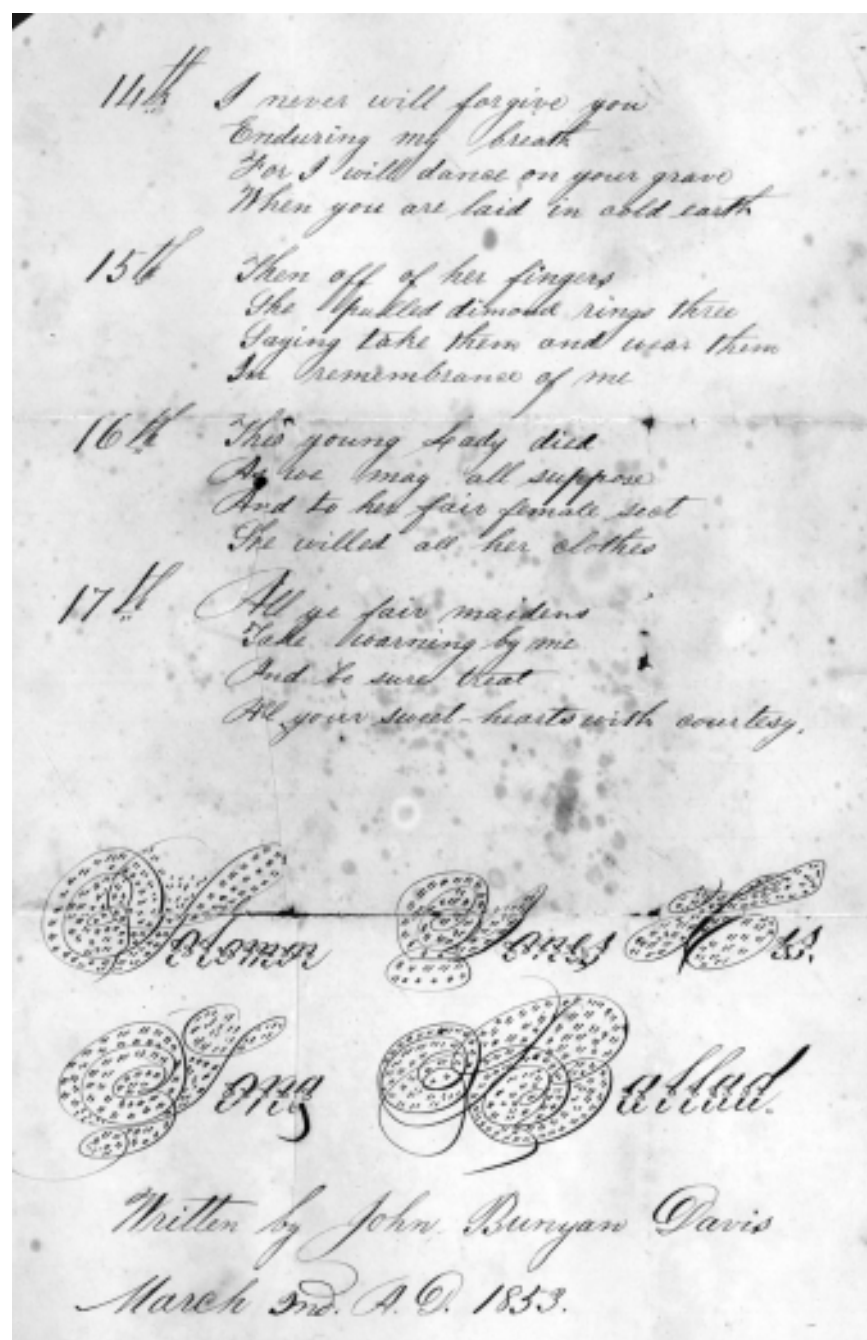 14th I never will forgive you
Enduring my breath
For I will dance on your grave
When you are laid in cold earth
15th Then off of her fingers
She pulled dimond rings three
Saying take them and wear them
In remembrance of me
16th This young Lady died
As we may all suppose
And to her fair female sect
She willed all her clothes
17th All ye fair maidens
Take warning by me
And be sure treat
All your sweet-hearts with courtesy.
Solomon Jones
Song Ballad.
Written by John Bunyan Davis
March 2nd. A. D. 1853.